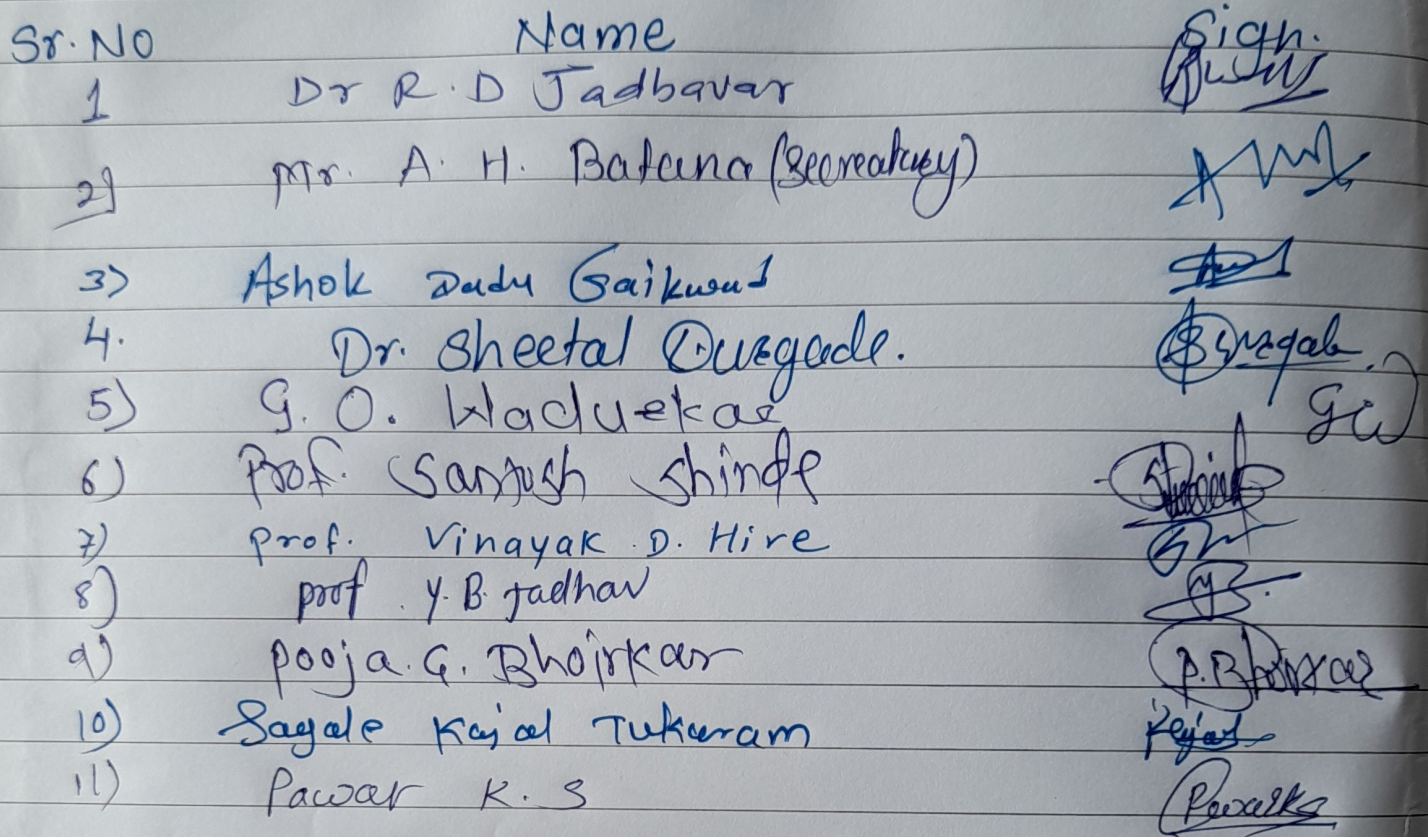 Sr. No Name Sign.
1 Dr R. D Jadbavar
2) Mr. A. H. Batana (Secreatuey)
3) Ashok Dadu Gaikwad
4. Dr. Sheetal
5) G. O. GW
6) Prof. Santosh Shinde
7) Prof. Vinayak D. Hire
8) prof. Y. B. Jadhav
9) Pooja. G. Bhoirkar P. Bhoirkar
10) Sagale Kajal Tukaram Kajal
11) Pawar K. S Pawarks